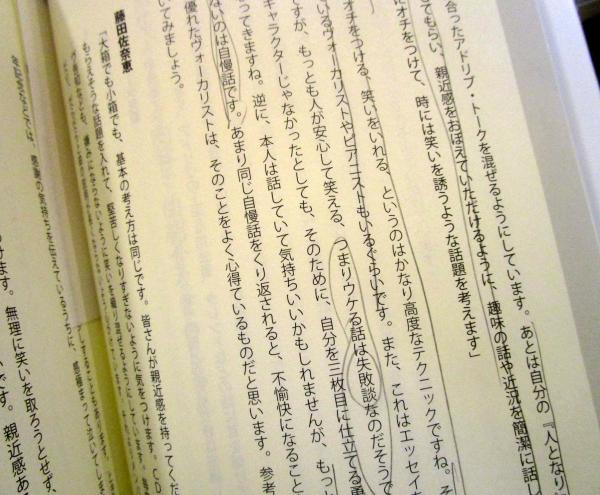 合ったアドリブ・トークを混ぜるようにしています。あとは自分の『人となり
てもらい、親近感をおぼえていただけるように、趣味の話や近況を簡潔に話
にオチをつけて、時には笑いを誘うような話題を考えます」
オチをつける、笑いをいれる、というのはかなり高度なテクニックですね。そ
いるヴォーカリストやピアニストもいるぐらいです。また、これはエッセイを
すが、もっとも人が安心して笑える、つまりウケる話は失敗談なのだそうで
キャラクターじゃなかったとしても、そのために、自分を三枚目に仕立てる勇
ってきますね。逆に、本人は話していて気持ちいいかもしれませんが、もっと
ないのは自慢話です。あまり同じ自慢話をくり返されると、不愉快になること
優れたヴォーカリストは、そのことをよく心得ているものだと思います。参考
いてみましょう。
藤田佐奈恵
「大箱でも小箱でも、基本の考え方は同じです。皆さんが親近感を持ってくだ
もらえそうな話題を入れて、堅苦しくなりすぎないように気をつけます。CD
けます。無理に笑いを取ろうとせず、
です。親近感あ